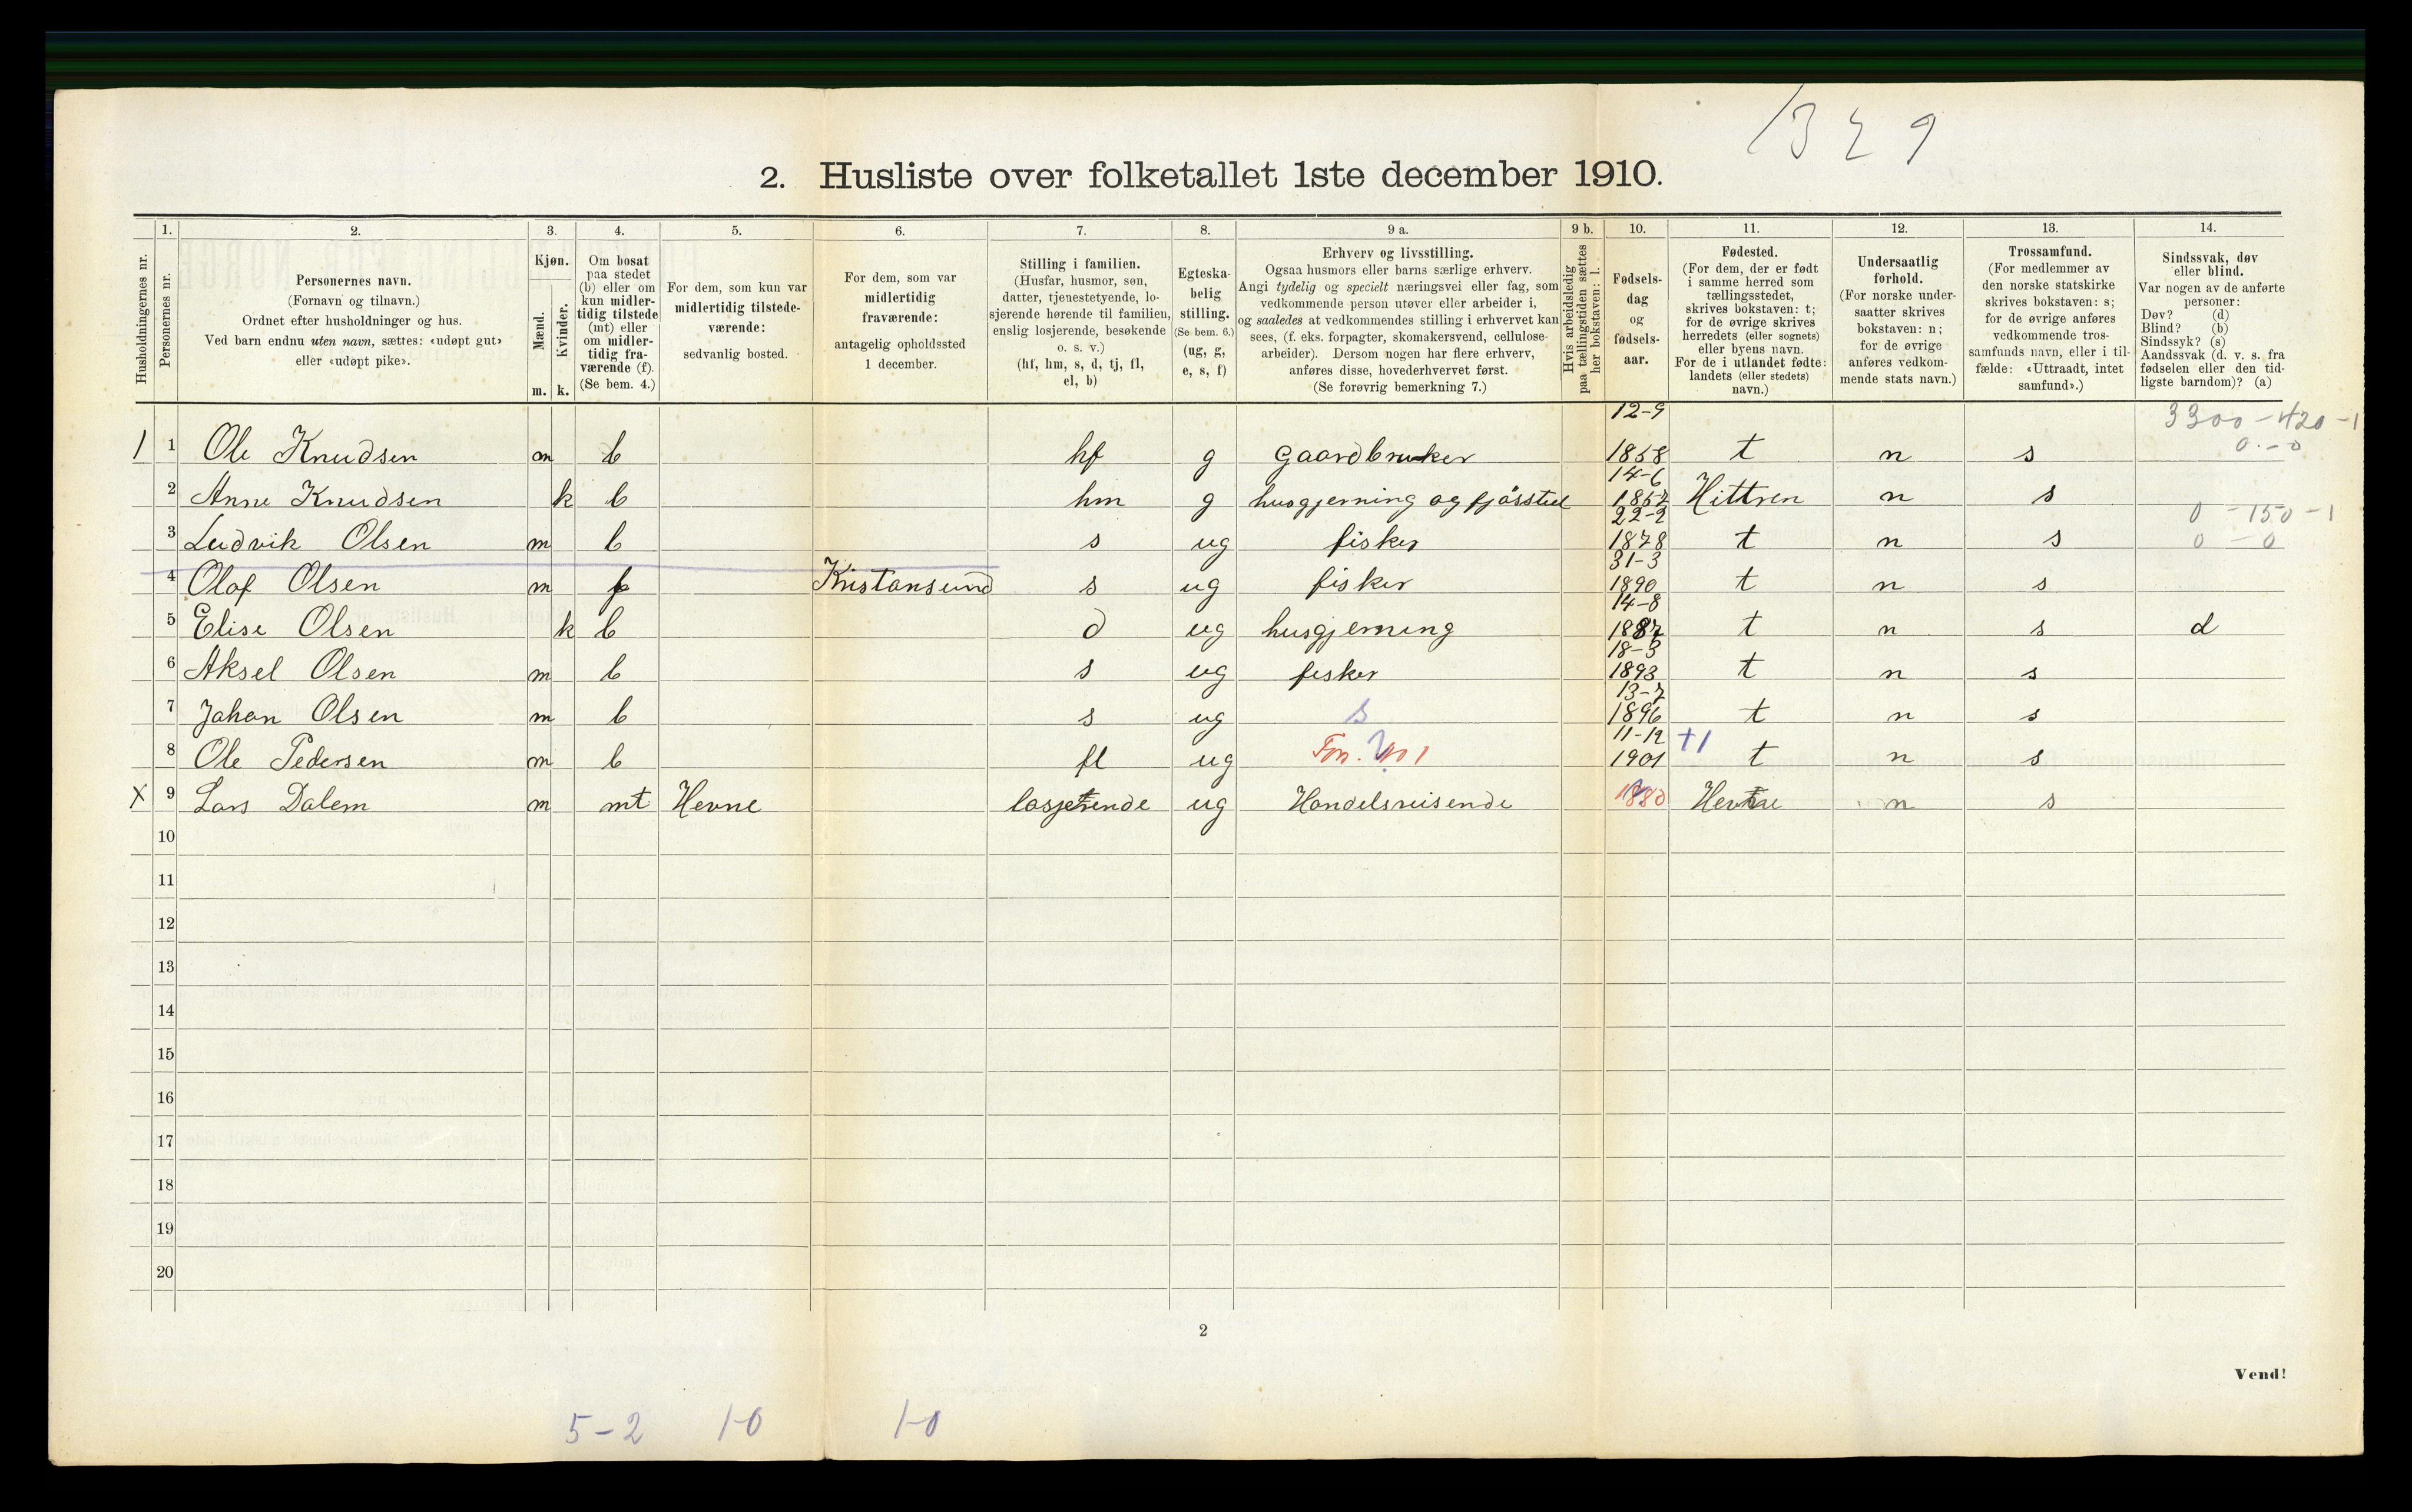 1329
2. Husliste over folketallet 1ste december 1910.
Husholdningernes nr.
1. Personernes nr.
2. Personernes navn.
(Fornavn og tilnavn.)
Ordnet efter husholdninger og hus.
Ved barn endnu uten navn, sættes: «udøpt gut»
eller «udøpt pike».
3. Kjøn.
Mænd. m.
Kvinder. k.
4. Om bosat
paa stedet
(b) eller om
kun midler-
tidig tilstede
(mt) eller
om midler-
tidig fra-
værende (f).
(Se bem. 4.)
5. For dem, som kun var
midlertidig tilstede-
værende:
sedvanlig bosted.
6. For dem, som var
midlertidig
fraværende:
antagelig opholdssted
1 december.
7. Stilling i familien.
(Husfar, husmor, søn,
datter, tjenestetyende, lo-
sjerende hørende til familien,
enslig losjerende, besøkende
o. s. v.)
(hf, hm, s, d, tj, fl,
el, b)
8. Egteska-
belig
stilling.
(Se bem. 6.)
(ug, g,
e, s, f)
9 a. Erhverv og livsstilling.
Ogsaa husmors eller barns særlige erhverv.
Angi tydelig og specielt næringsvei eller fag, som
vedkommende person utøver eller arbeider i,
og saaledes at vedkommendes stilling i erhvervet kan
sees, (f. eks. forpagter, skomakersvend, cellulose-
arbeider). Dersom nogen har flere erhverv,
anføres disse, hovederhvervet først.
(Se forøvrig bemerkning 7.)
9 b. Hvis arbeidsledig
paa tællingstiden sættes
her bokstaven: l.
10. Fødsels-
dag
og
fødsels-
aar.
11. Fødested.
(For dem, der er født
i samme herred som
tællingsstedet,
skrives bokstaven: t;
for de øvrige skrives
herredets (eller sognets)
eller byens navn.
For de i utlandet fødte:
landets (eller stedets)
navn.)
12. Undersaatlig
forhold.
(For norske under-
saatter skrives
bokstaven: n;
for de øvrige
anføres vedkom-
mende stats navn.)
13. Trossamfund.
(For medlemmer av
den norske statskirke
skrives bokstaven: s;
for de øvrige anføres
vedkommende tros-
samfunds navn, eller i til-
fælde: «Uttraadt, intet
samfund».)
14. Sindssvak, døv
eller blind.
Var nogen av de anførte
personer:
Døv? (d)
Blind? (b)
Sindssyk? (s)
Aandssvak (d. v. s. fra
fødselen eller den tid-
ligste barndom)? (a)
1 1 Ole Knudsen m b hf g gaardbruker 12-9 1858 t n s 3300-420-1 0.-0
2 Anne Knudsen k b hm g husgjerning og fjøsstel 14-6 1857 Hittren n s
3 Ludvik Olsen m b s ug fisker 22-2 1878 t n s 0-150-1 0-0
4 Olaf Olsen m f Kristansund s ug fisker 31-3 1890 t n s
5 Elise Olsen k b d ug husgjerning 14-8 1887 t n s d
6 Aksel Olsen m b s ug fisker 18-3 1893 t n s
7 Johan Olsen m b s ug s 13-7 1896 t n s
8 Ole Pedersen m b fl ug 11-12 1901 +1 t n s
X 9 Lars Dalem m mt Hevne losjerende ug Handelsreisende 1880 Hevne n s
10
11
12
13
14
15
16
17
18
19
20
2
Vend!
5-2 1-0 1-0